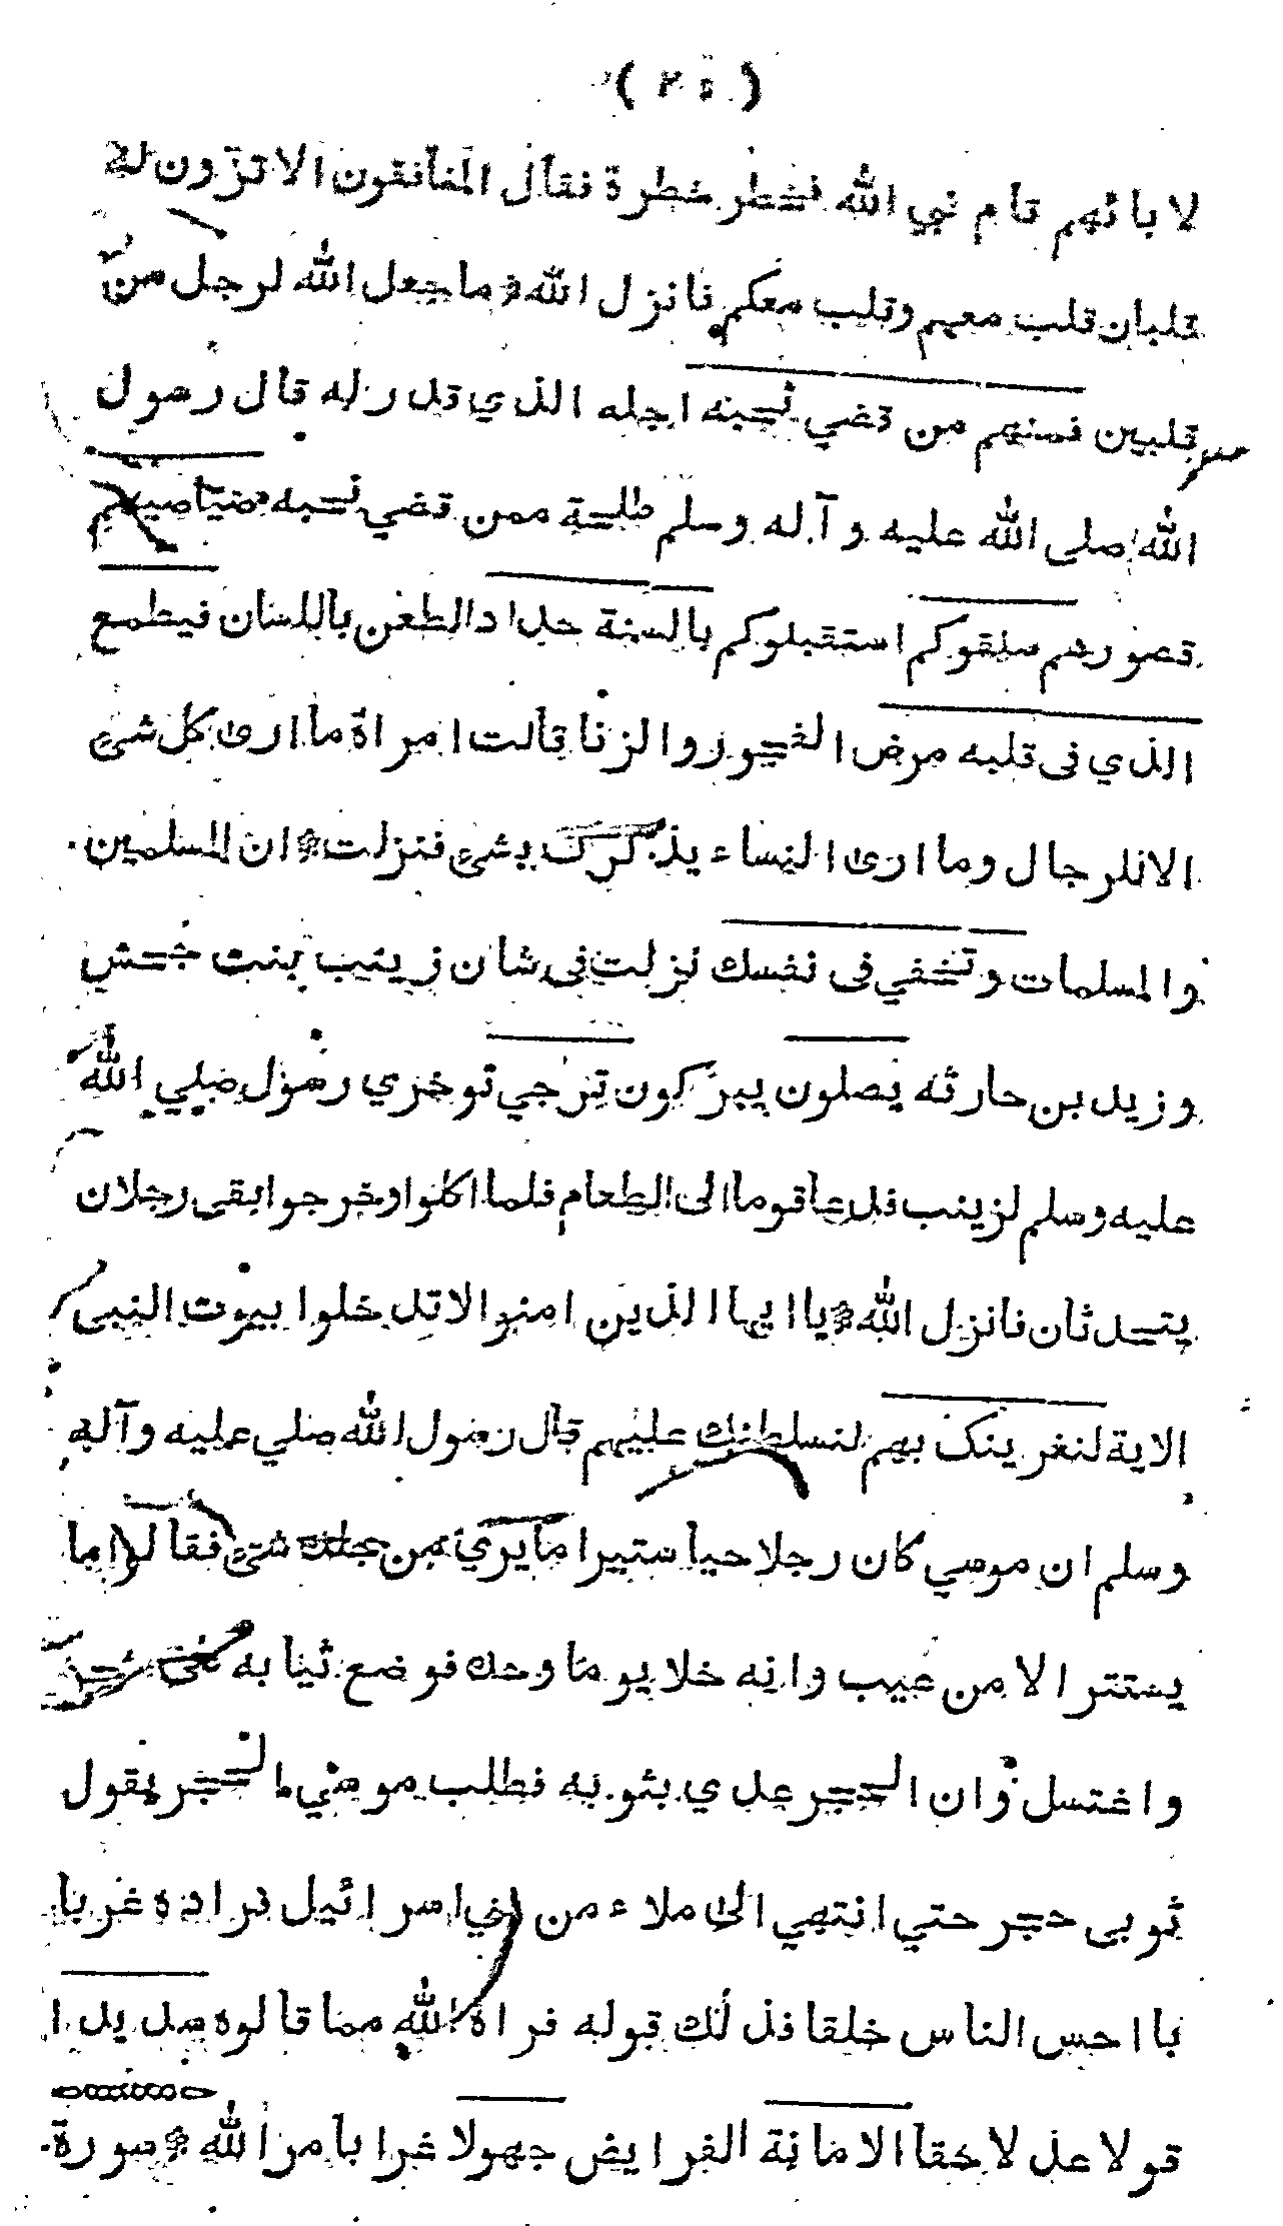 ( ٢٥ )
لا بائهم قام نبي الله فخطر خطرة فقال المنافقون الا ترون له
قلبان قلب معهم وقلب معكم فانزل الله ما جعل الله لرجل من
قلبين فمنهم من قضي نحبه اجله الذي قدر له قال رسول
الله صلى الله عليه وآله وسلم طلحة ممن قضي نحبه صياصيهم
قصورهم سلقوكم استقبلوكم بالسنة حداد الطعن باللسان فيطمع
الذي فى قلبه مرض الفجور والزنا قالت امراة ما ارى كل شئ
الا للرجال وما ارى النساء يذكرك بشئ فنزلت ان المسلمين
والمسلمات وتخفي فى نفسك نزلت فى شان زينب بنت جحش
وزيد بن حارثه يصلون يبركون ترجي توخري رسول صلي الله
عليه وسلم لزينب فدعا قوما الى الطعام فلما اكلوا وخرجوا بقى رجلان
يتحدثان فانزل الله يا ايها الذين امنوا لا تدخلوا بيوت النبى
الاية لنغرينك بهم لنسلطنك عليهم قال رسول الله صلي عليه وآله
وسلم ان موسي كان رجلا حيا ستيرا ما يري من جلده شئ فقالوا ما
يستتر الا من عيب وانه خلا يوما وحده فوضع ثيابه على حجر
واغتسل وان الحجر عدي بثوبه فطلب موسي الحجر يقول
ثوبى حجر حتي انتهي الى ملاء من بني اسرائيل فراده عريا
با احس الناس خلقا فذلك قوله فراة الله مما قالوه سديدا
قولا عدلا حقا الامانة الفرايض جهولا غرا بامر الله سورة